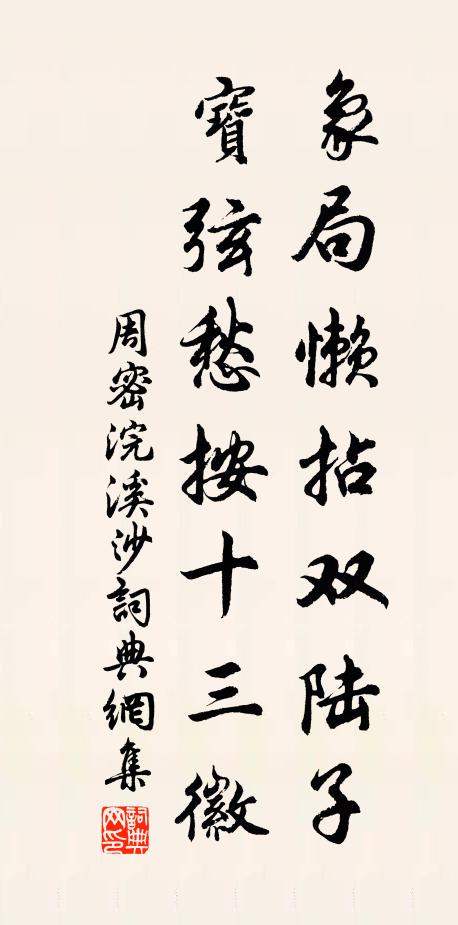 象局懒拈双陆子
寶弦愁按十三徽
周密浣溪沙詞典網集
詞典網印